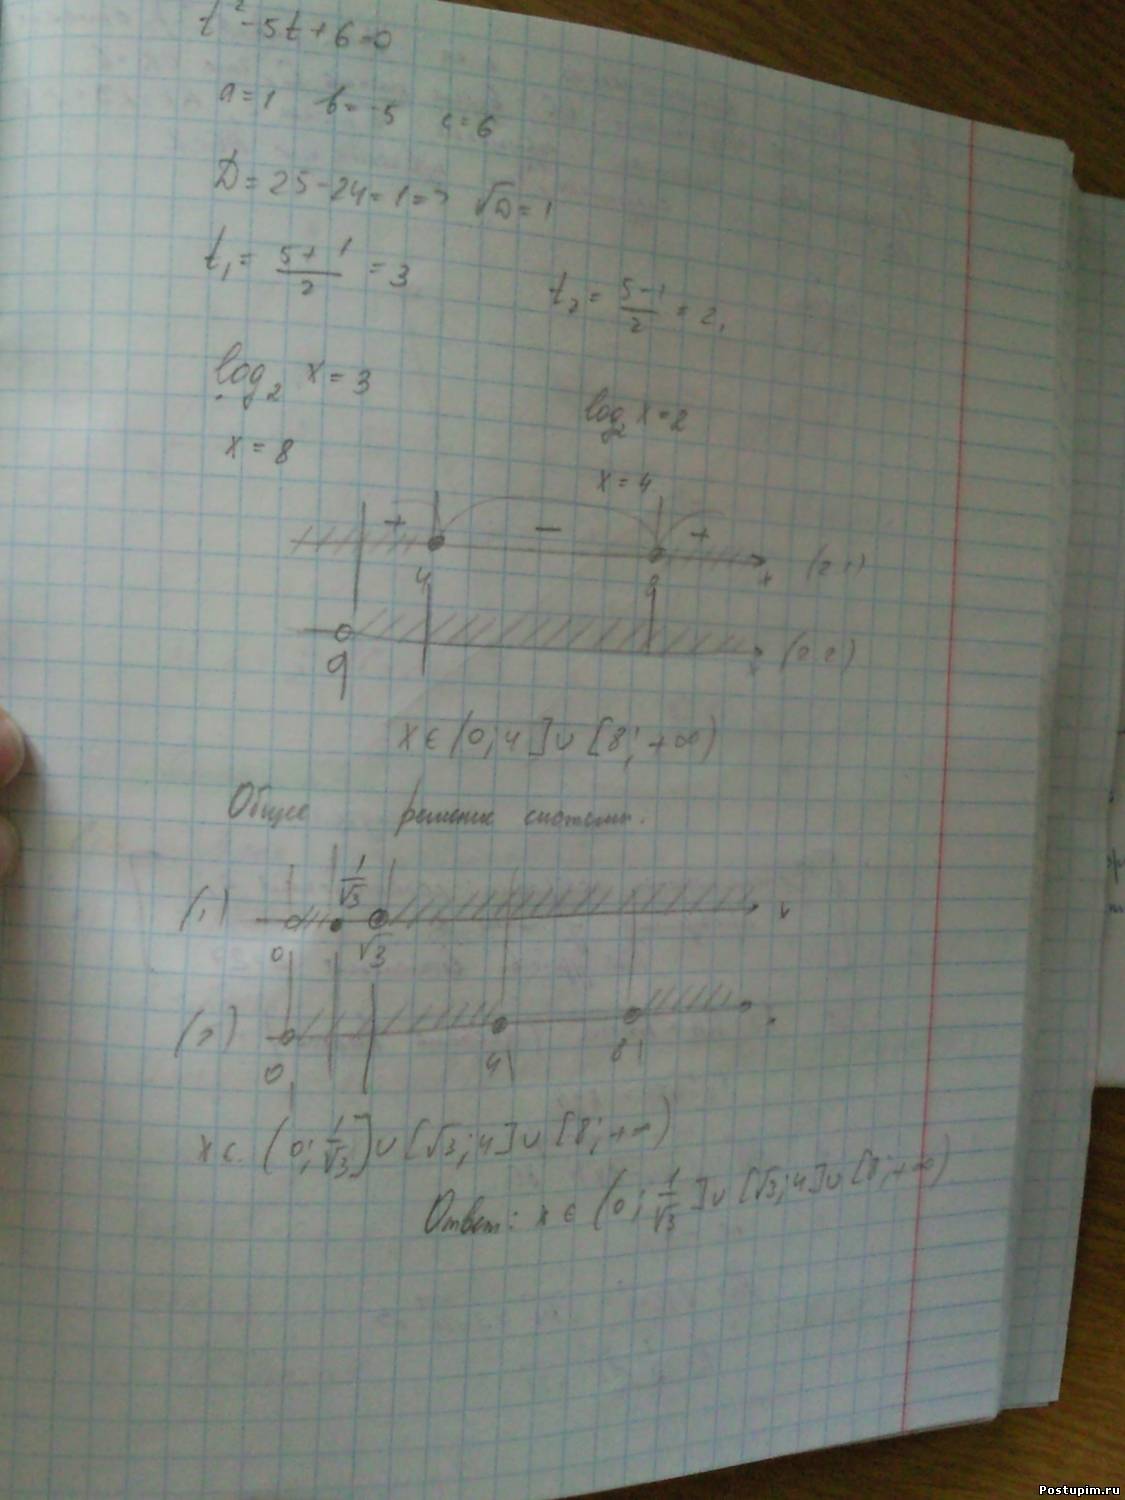 t² - 5t + 6 = 0
a = 1 b = -5 c = 6
D = 25 - 24 = 1 => √D = 1
t₁ = (5 + 1)/2 = 3 t₂ = (5 - 1)/2 = 2,
log₂ x = 3 log₂ x = 2
x = 8 x = 4
+ − +
4 8 x (2.1)
0 x (2.2)
x ∈ (0; 4] ∪ [8; +∞)
Общее решение системы.
(1) 0 1/√3 √3 x
(2) 0 4 8 x
x ∈ (0; 1/√3] ∪ [√3; 4] ∪ [8; +∞)
Ответ: x ∈ (0; 1/√3] ∪ [√3; 4] ∪ [8; +∞)
Postupim.ru